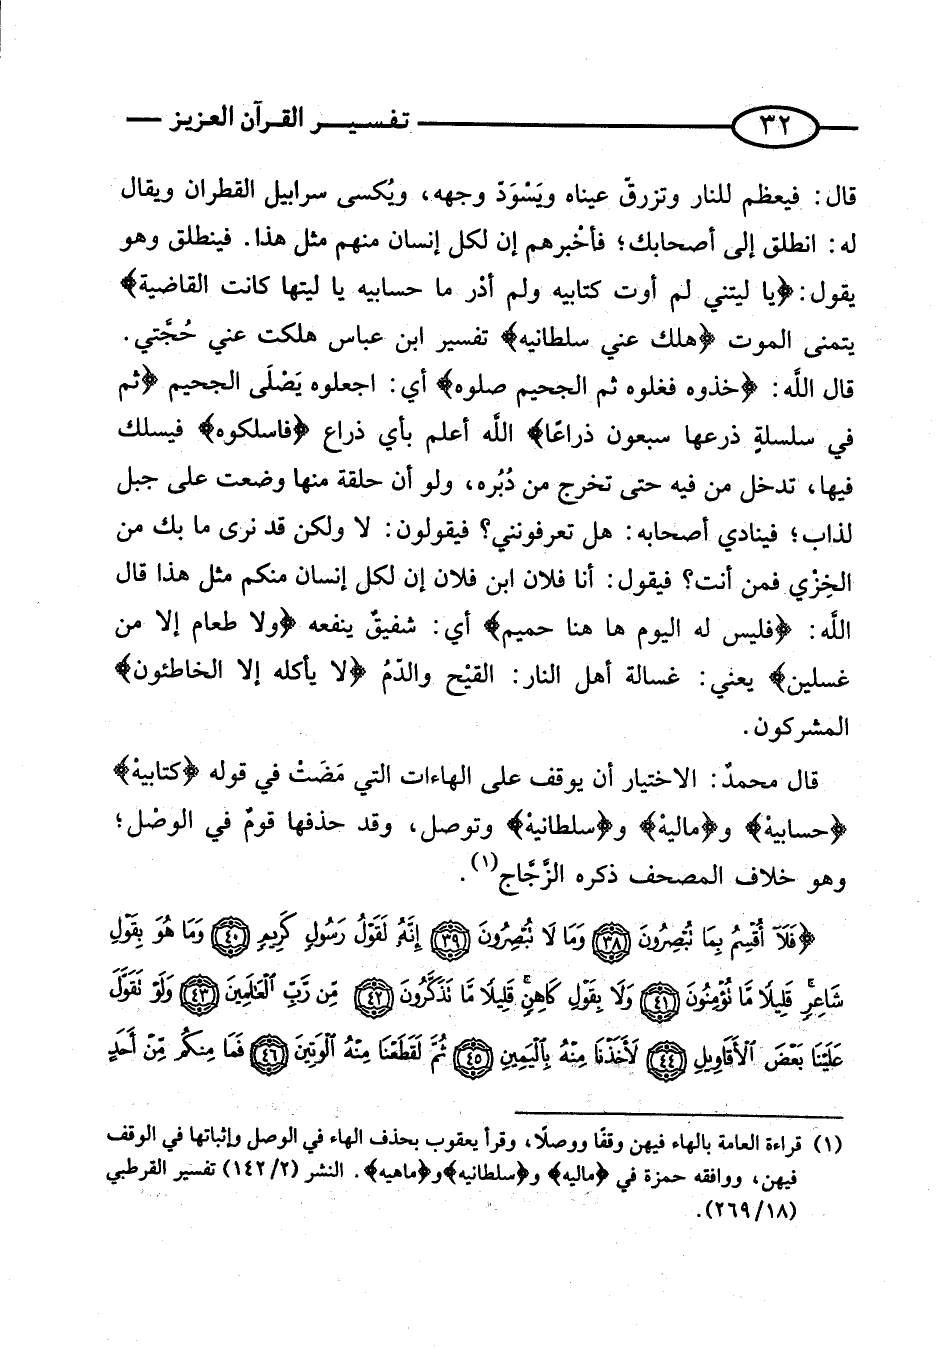 ٣٢ تفسير القرآن العزيز
قال: فيعظم للنار وتزرقّ عيناه ويَسْوَدّ وجهه، ويُكسى سرابيل القطران ويقال
له: انطلق إلى أصحابك؛ فأخْبرهم إن لكل إنسان منهم مثل هذا. فينطلق وهو
يقول: ﴿يا ليتني لم أوت كتابيه ولم أدْر ما حسابيه يا ليتها كانت القاضية﴾
يتمنى الموت ﴿هلك عني سلطانيه﴾ تفسير ابن عباس هلكت عني حُجَّتي.
قال اللَّه: ﴿خذوه فغلوه ثم الجحيم صلوه﴾ أي: اجعلوه يَصْلَى الجحيم ﴿ثم
في سلسلةٍ ذرعها سبعون ذراعًا﴾ اللَّه أعلم بأي ذراع ﴿فاسلكوه﴾ فيسلك
فيها، تدخل من فيه حتى تخرج من دُبُره، ولو أن حلقة منها وضعت على جبل
لذاب؛ فينادي أصحابه: هل تعرفونني؟ فيقولون: لا ولكن قد نرى ما بك من
الخِزْي فمن أنت؟ فيقول: أنا فلان ابن فلان إن لكل إنسان منكم مثل هذا قال
اللَّه: ﴿فليس له اليوم ها هنا حميم﴾ أي: شفيقٌ ينفعه ﴿ولا طعام إلا من
غسلين﴾ يعني: غسالة أهل النار: القيْح والدّمُ ﴿لا يأكله إلا الخاطئون﴾
المشركون.
قال محمدٌ: الاختيار أن يوقف على الهاءات التي مَضَتْ في قوله ﴿كتابيهْ﴾
﴿حسابيهْ﴾ و﴿ماليهْ﴾ و﴿سلطانيهْ﴾ وتوصل، وقد حذفها قومٌ في الوصْل؛
وهو خلاف المصحف ذكره الزَّجَّاج(١).
﴿فَلَآ أُقْسِمُ بِمَا تُبْصِرُونَ ٣٨ وَمَا لَا تُبْصِرُونَ ٣٩ إِنَّهُ لَقَوْلُ رَسُولٍ كَرِيمٍ ٤٠ وَمَا هُوَ بِقَوْلِ
شَاعِرٍۚ قَلِيلًا مَّا تُؤْمِنُونَ ٤١ وَلَا بِقَوْلِ كَاهِنٍۚ قَلِيلًا مَّا تَذَكَّرُونَ ٤٢ مِن رَّبِّ الْعَالَمِينَ ٤٣ وَلَوْ تَقَوَّلَ
عَلَيْنَا بَعْضَ الْأَقَاوِيلِ ٤٤ لَأَخَذْنَا مِنْهُ بِالْيَمِينِ ٤٥ ثُمَّ لَقَطَعْنَا مِنْهُ الْوَتِينَ ٤٦ فَمَا مِنكُم مِّنْ أَحَدٍ
(١) قراءة العامة بالهاء فيهن وقفًا ووصلًا، وقرأ يعقوب بحذف الهاء في الوصل وإثباتها في الوقف
فيهن، ووافقه حمزة في ﴿ماليه﴾ و﴿سلطانيه﴾ و﴿ماهيه﴾. النشر (١٤٢/٢) تفسير القرطبي
(٢٦٩/١٨).